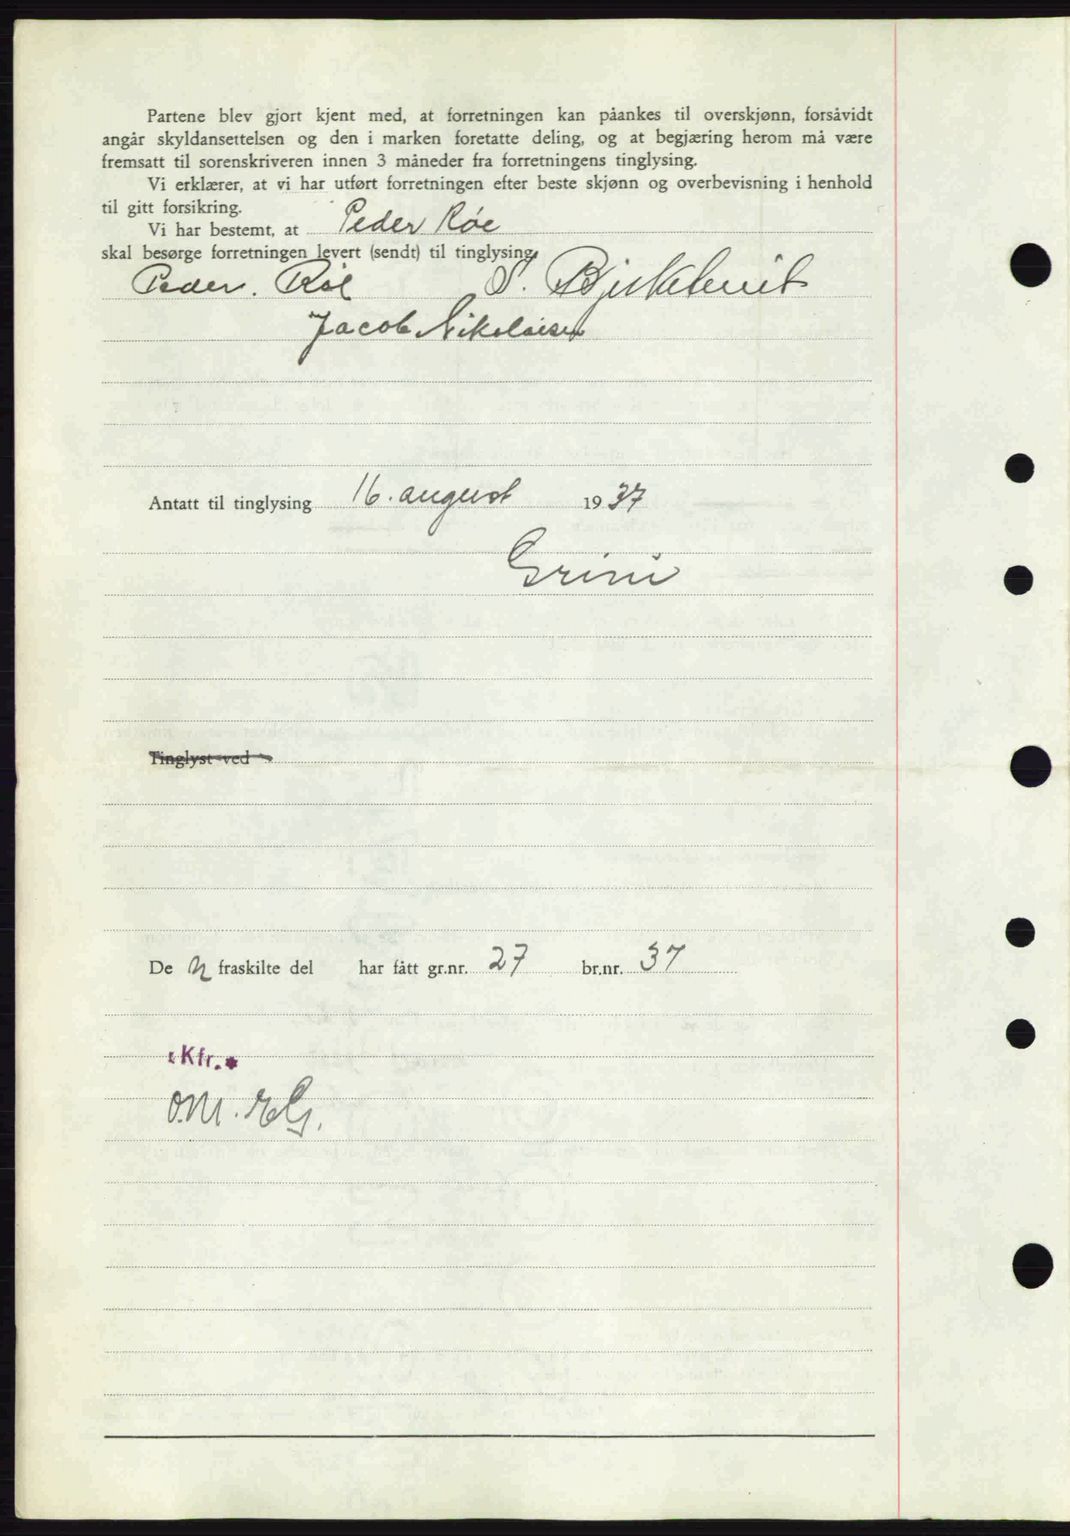 Partene blev gjort kjent med, at forretningen kan påankes til overskjønn, forsåvidt
angår skyldansettelsen og den i marken foretatte deling, og at begjæring herom må være
fremsatt til sorenskriveren innen 3 måneder fra forretningens tinglysing.
Vi erklærer, at vi har utført forretningen efter beste skjønn og overbevisning i henhold
til gitt forsikring.
Vi har bestemt, at Peder Røe
skal besørge forretningen levert (sendt) til tinglysing.
Peder. Röe S.
Jacob Nikolaisen
Antatt til tinglysing 16. august 1937
Grini
Tinglyst ved
De n fraskilte del har fått gr.nr. 27 br.nr. 37
Kfr.*
O.M. EG.